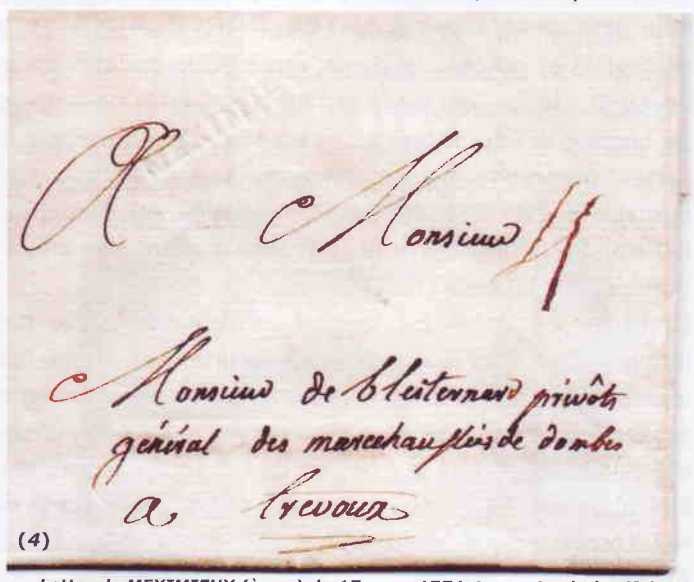 A Monsieur
Monsieur de privôts
général des marechaussées de dombes
a Trevoux
(4)